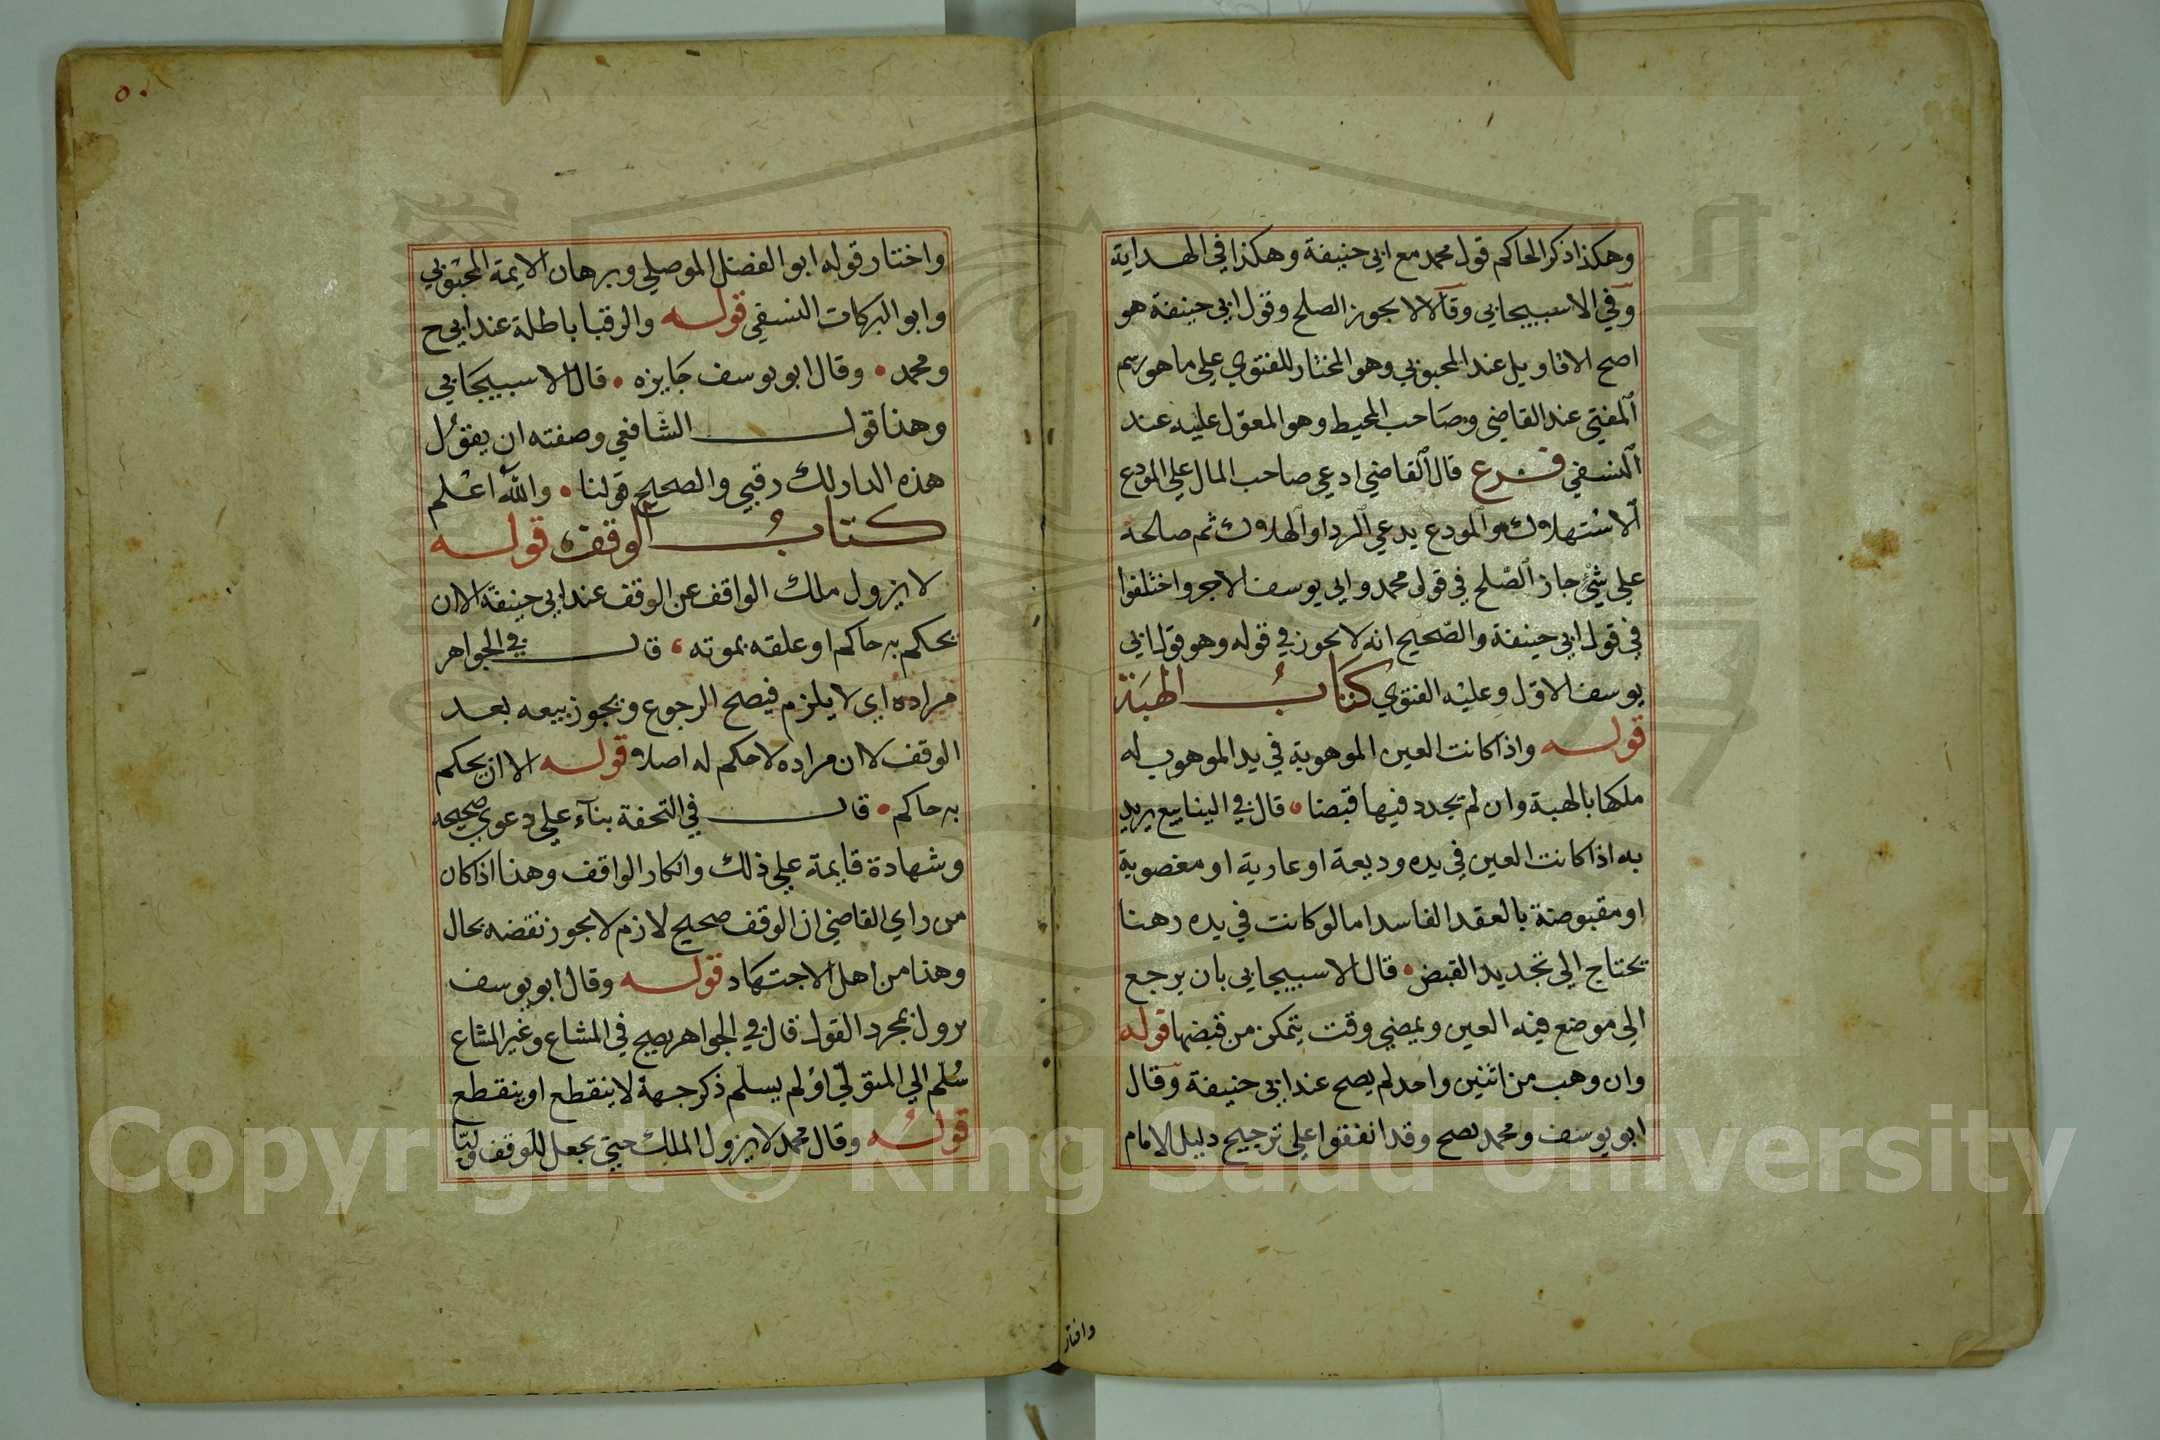 وهكذا ذكر الحاكم قول محمد مع ابي حنيفة وهكذا في الهداية
وفي الاسبيجابي وقالا لا يجوز الصلح وقول ابي حنيفة هو
اصح الاقاويل عند المحبوبي وهو المختار للفتوي علي ما هو رسم
المفتي عند القاضي وصاحب المحيط وهو المعول عليه عند
النسفي فرع قال القاضي ادعي صاحب المال علي المودع
الاستهلاك والمودع يدعي الرد او الهلاك ثم صالحه
علي شيء جاز الصلح في قول محمد وابي يوسف الاخر واختلفوا
في قول ابي حنيفة والصحيح انه لا يجوز في قوله وهو قول ابي
يوسف الاول وعليه الفتوي كتاب الهبة
قوله واذا كانت العين الموهوبة في يد الموهوب له
ملكها بالهبة وان لم يجدد فيها قبضا قال في الينابيع يريد
به اذا كانت العين في يده وديعة او عارية او مغصوبة
او مقبوضة بالعقد الفاسد اما لو كانت في يده رهنا
يحتاج الي تجديد القبض قال الاسبيجابي بان يرجع
الي موضع فيه العين ويمضي وقت يتمكن من قبضها قوله
وان وهب من اثنين واحد لم يصح عند ابي حنيفة وقال
ابو يوسف ومحمد يصح وقد اتفقوا علي ترجيح دليل الامام
واختار
٥٠
واختار قوله ابو الفضل الموصلي وبرهان الايمة المحبوبي
وابو البركات النسفي قوله والرقبا باطلة عند ابي ح
ومحمد وقال ابو يوسف جايزه قال الاسبيجابي
وهذا قول الشافعي وصفته ان يقول
هذه الدار لك رقبي والصحيح قولنا والله اعلم
كتاب الوقف قوله
لا يزول ملك الواقف عن الوقف عند ابي حنيفة الا ان
يحكم به حاكم او علقه بموته قال في الجواهر
مراده اي لا يلزم فيصح الرجوع ويجوز بيعه بعد
الوقف لا ان مراده لا حكم له اصلا قوله الا ان يحكم
به حاكم قال في التحفة بناء علي دعوي صحيحه
وشهادة قايمة علي ذلك وانكار الواقف وهذا اذا كان
من راي القاضي ان الوقف صحيح لازم لا يجوز نقضه بحال
وهذا من اهل الاجتهاد قوله وقال ابو يوسف
يزول بمجرد القول قال في الجواهر يصح في المشاع وغير المشاع
سلم الي المتولي او لم يسلم ذكر جهة لا ينقطع او ينقطع
قوله وقال محمد لا يزول الملك حتي يجعل للوقف وليا
Copyright © King Saud University